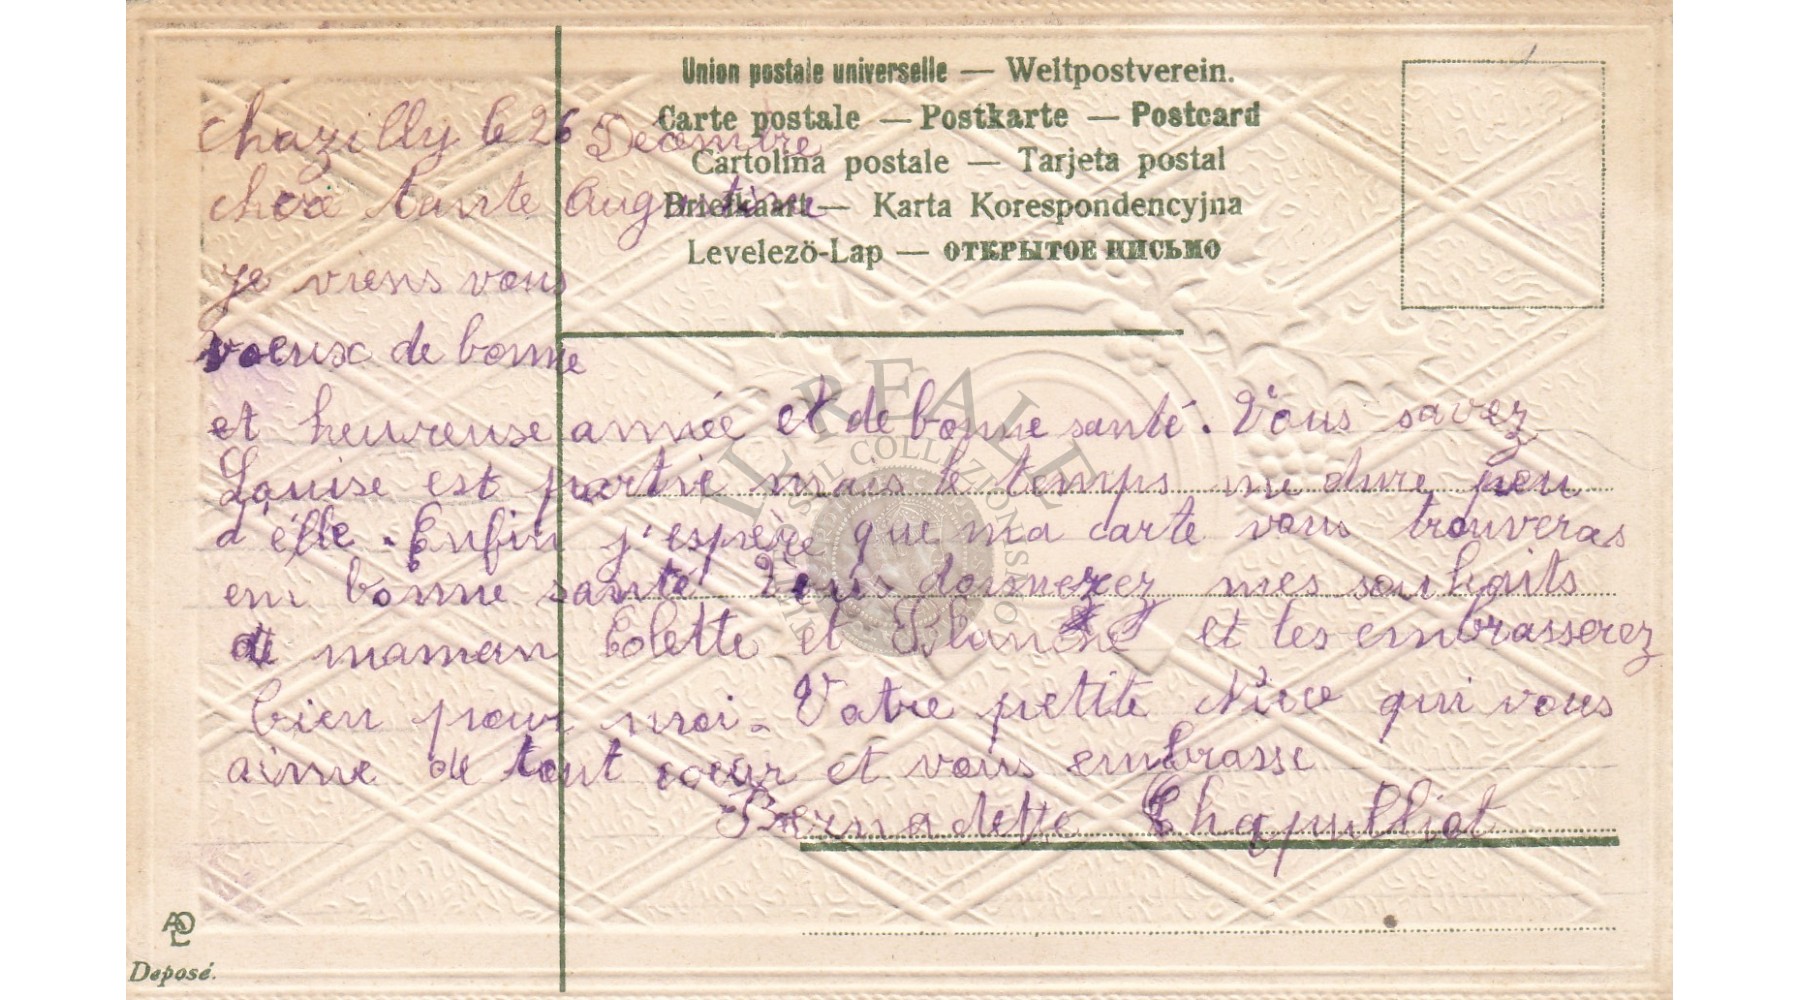 Union postale universelle — Weltpostverein.
Carte postale — Postkarte — Postcard
Cartolina postale — Tarjeta postal
Briefkaart — Karta Korespondencyjna
Levelező-Lap — ОТКРЫТОЕ ПИСЬМО
Chazilly le 26 Decembre
chere tante Augustine
je viens vous
voeusc de bonne
et heureuse année et de bonne santé. Vous savez
Louise est partie mais le temps me dure peu
d'élle. Enfin j'espere que ma carte vous trouveras
en bonne santé Vous donnerez mes souhaits
de maman Colette et Blanche et les embrasserez
bien pour moi. Votre petite Niece qui vous
aime de tout coeur et vous embrasse
Bernadette
ADL
Deposé.
LA REALE